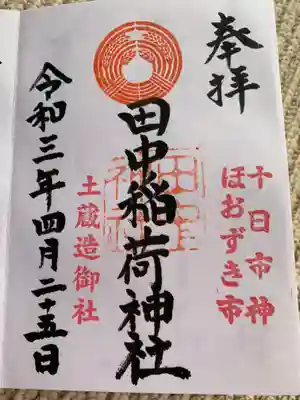 奉拝
十日市神
ほおずき市
田中稲荷神社
土蔵造御社
令和三年四月二十五日